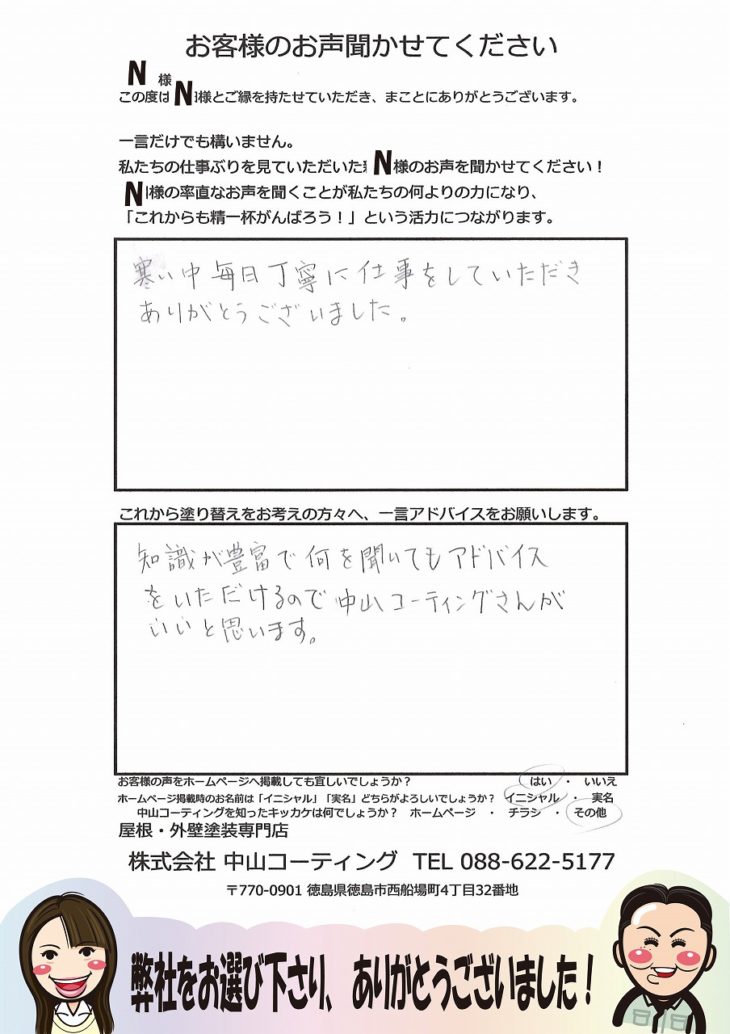 お客様のお声聞かせてください
N 様
この度は N 様とご縁を持たせていただき、まことにありがとうございます。
一言だけでも構いません。
私たちの仕事ぶりを見ていただいた N 様のお声を聞かせてください！
N 様の率直なお声を聞くことが私たちの何よりの力になり、
「これからも精一杯がんばろう！」という活力につながります。
寒い中毎日丁寧に仕事をしていただき
ありがとうございました。
これから塗り替えをお考えの方々へ、一言アドバイスをお願いします。
知識が豊富で何を聞いてもアドバイス
をいただけるので中山コーティングさんが
いいと思います。
お客様の声をホームページへ掲載しても宜しいでしょうか？ はい ・ いいえ
ホームページ掲載時のお名前は「イニシャル」「実名」どちらがよろしいでしょうか？ イニシャル ・ 実名
中山コーティングを知ったキッカケは何でしょうか？ ホームページ ・ チラシ ・ その他
屋根・外壁塗装専門店
株式会社 中山コーティング TEL 088-622-5177
〒770-0901 徳島県徳島市西船場町4丁目32番地
弊社をお選び下さり、ありがとうございました！